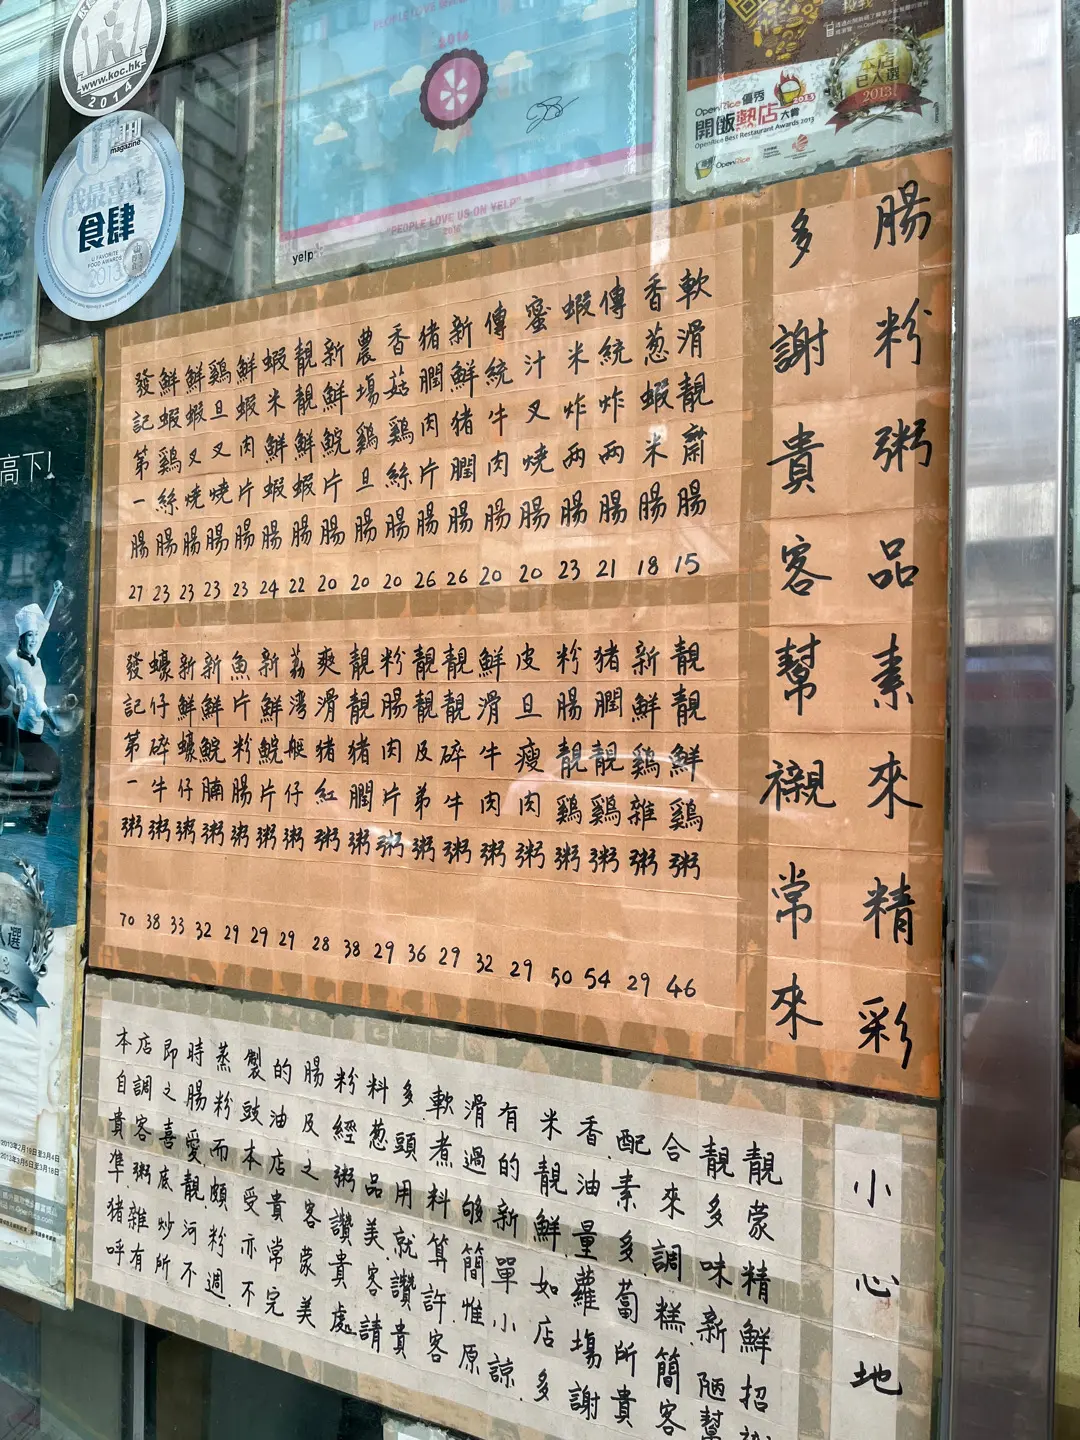 www.koc.hk
2014
U magazine
我最喜愛
食肆
U FAVORITE
FOOD AWARDS
2013
2016
"PEOPLE LOVE US ON YELP"
yelp
OpenRice 優秀
開飯熱店大獎 2013
OpenRice Best Restaurant Awards 2013
OpenRice
本店
已入選
2013
高下!
腸粉粥品素來精彩
多謝貴客幫襯常來
軟滑靚齋腸 15
香葱蝦米腸 18
傳統炸兩腸 21
蝦米炸兩腸 23
蜜汁叉燒腸 20
傳統牛肉腸 20
新鮮豬膶腸 26
豬膶肉片腸 26
香菇鷄絲腸 20
農塲鷄旦腸 20
新鮮鯇片腸 20
靚靚鮮蝦腸 22
蝦米鮮蝦腸 24
鮮蝦肉片腸 23
鷄旦叉燒腸 23
鮮蝦叉燒腸 23
鮮蝦鷄絲腸 23
發記第一腸 27
靚靚鮮鷄粥 46
新鮮鷄雜粥 29
豬膶靚鷄粥 54
粉腸靚鷄粥 50
皮旦瘦肉粥 29
鮮滑牛肉粥 32
靚靚碎牛粥 29
靚靚及弟粥 36
粉腸肉片粥 29
靚靚豬膶粥 38
爽滑豬紅粥 28
荔灣艇仔粥 29
新鮮鯇片粥 29
魚片粉腸粥 29
新鮮鯇腩粥 32
新鮮蠔仔粥 33
蠔仔碎牛粥 38
發記第一粥 70
小心地
本店即時蒸製的腸粉料多軟滑有米香.配合靚靚
自調之腸粉豉油及經葱頭煮過的靚油素來多蒙
貴客喜愛.而本店之粥品用料够新鮮.量多.調味精
準粥底靚.頗受貴客讚美.就算簡單如蘿蔔糕新鮮
豬雜炒河粉亦常蒙貴客讚許.惟小店塲所簡陋招
呼有所不週.不完美處.請貴客原諒.多謝貴客幫
2013年2月18日至3月4日
2013年3月5日至3月18日